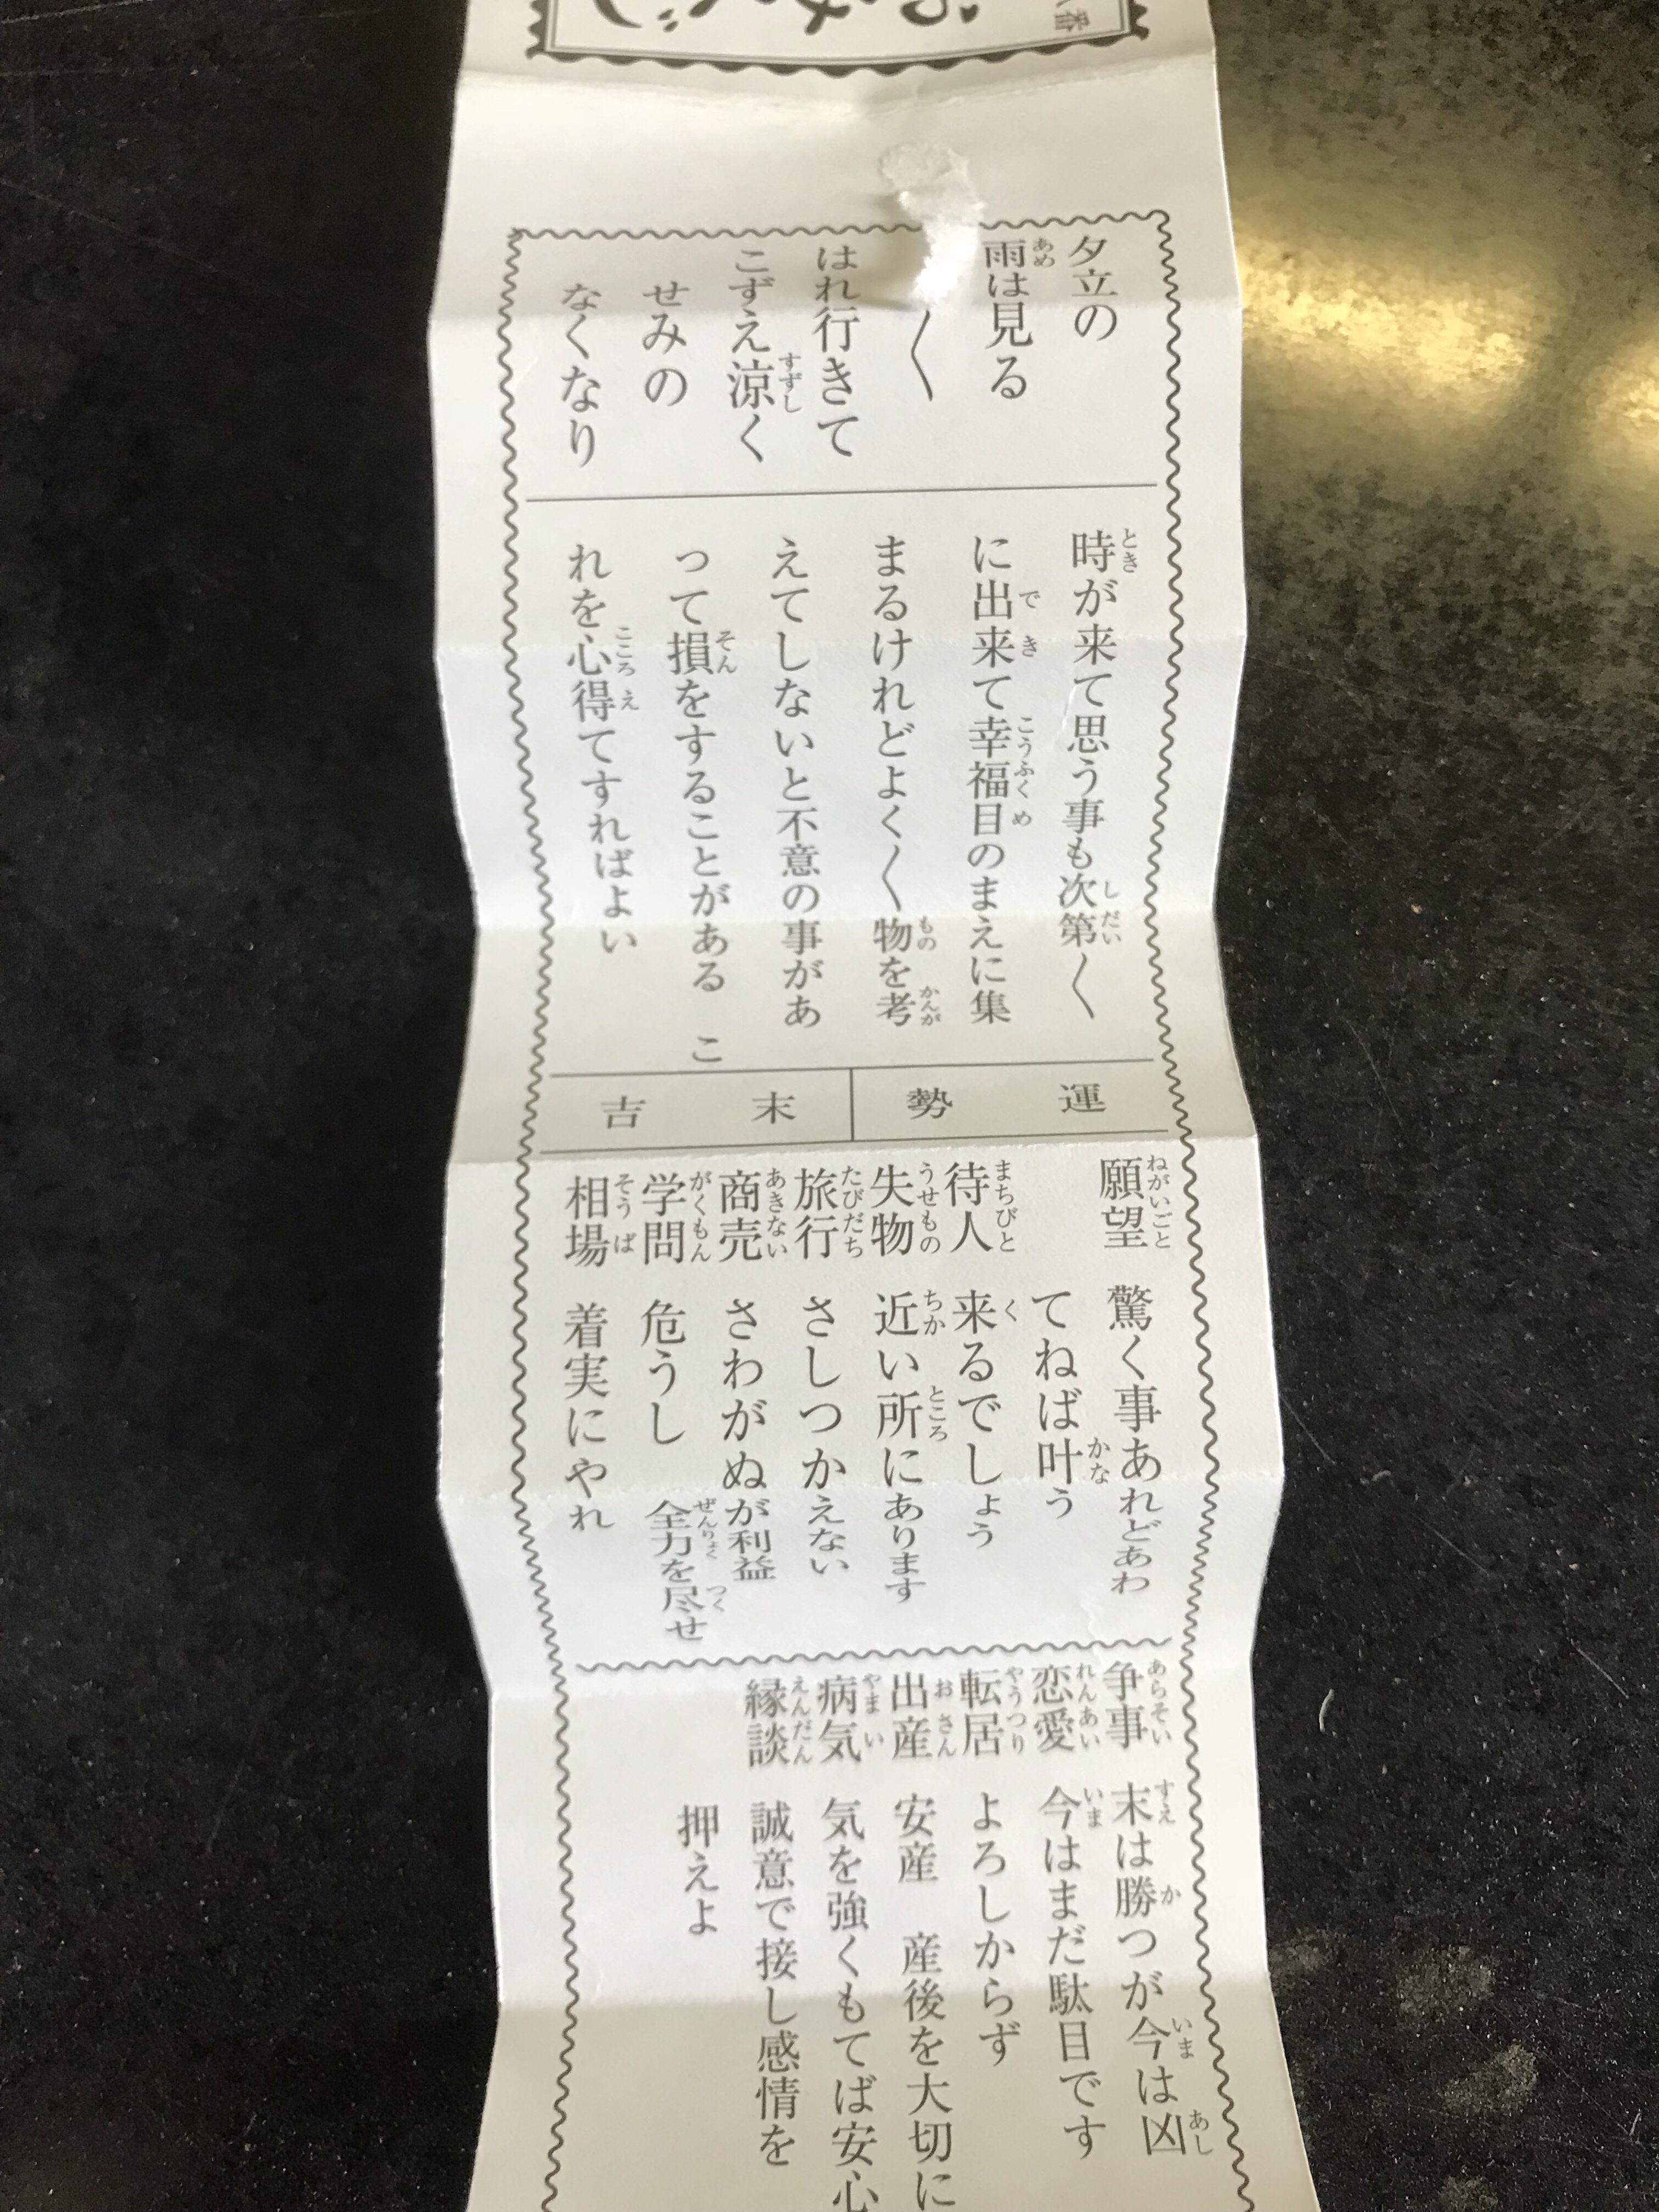 番
おみくじ
夕立の
雨は見る
〱
はれ行きて
こずえ涼く
せみの
なくなり
時が来て思う事も次第〱
に出来て幸福目のまえに集
まるけれどよく〱物を考
えてしないと不意の事があ
って損をすることがある こ
れを心得てすればよい
運勢
末吉
願望 驚く事あれどあわ
てねば叶う
待人 来るでしょう
失物 近い所にあります
旅行 さしつかえない
商売 さわがぬが利益
学問 危うし 全力を尽せ
相場 着実にやれ
争事 末は勝つが今は凶
恋愛 今はまだ駄目です
転居 よろしからず
出産 安産 産後を大切に
病気 気を強くもてば安心
縁談 誠意で接し感情を
押えよ